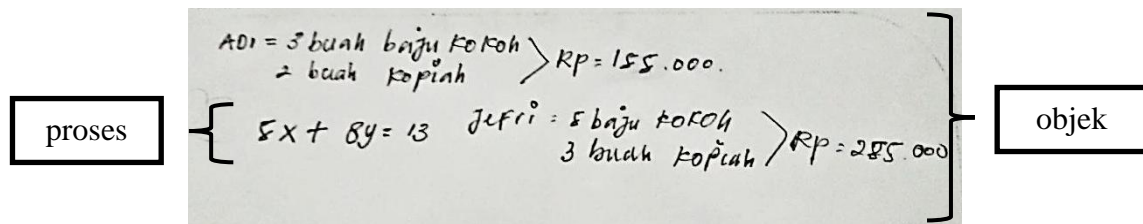 ADI = 3 buah baju kokoh
2 buah kopiah
Rp = 155.000.
proses
5x + 8y = 13
Jefri : 5 baju kokoh
3 buah kopiah
Rp = 285.000
objek